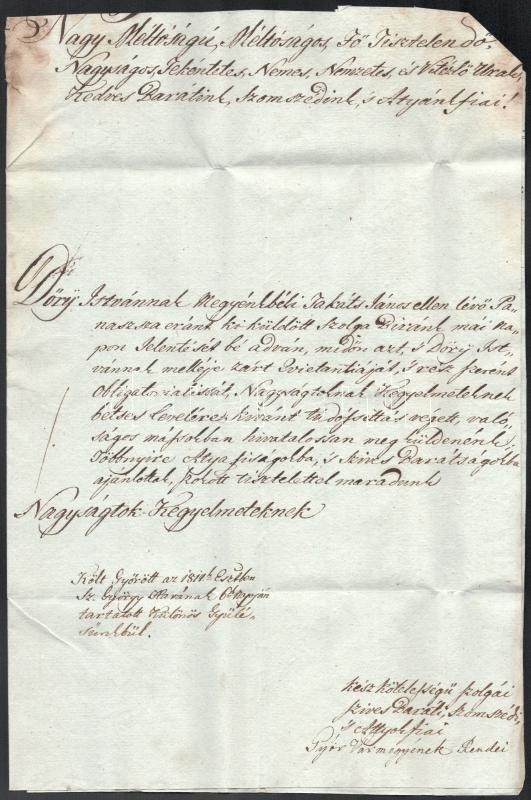 Nagy Méltóságú, Méltóságos, Fő Tisztelendő
Nagyságos, Tekéntetes, Nemes, Nemzetes, és Vitézlő Urak,
Kedves Barátink, Szomszédink, 's Atyánkfiai!
Dőry Istvánnak Megyénkbéli Takáts János ellen lévő Pa-
naszsza eránt ki küldött Szolga Biránk mai na-
pon Jelentését bé adván, midőn azt, 's Dőry Ist-
vánnak melléje zárt Qvietantiáját, 's rész szerént
obligatorialissát, Nagyságtoknak Kegyelmeteknek
bétses Levelére kivánt tudósittás végett, való-
ságos mássorban hivatalossan meg küldenénk,
Többnyire Atyafiúságokba, 's szives Barátságokba
ajánlottak, szokott tisztelettel maradunk
Nagyságtok Kegyelmeteknek
Költ Győrött az 1811k Esztben
Sz. György Havának 6k napján
tartatott Különös Gyűlé-
sünkbül.
kész kötelességü szolgái
szives Baráti, Szomszédi,
's Attyokfiai
Győr Vármegyének Rendei